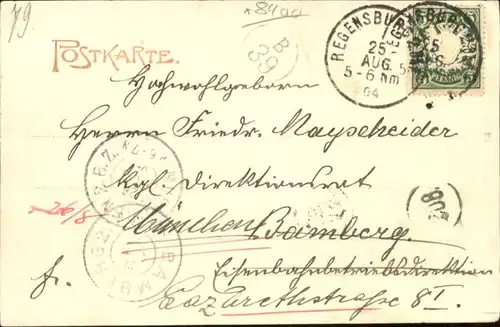 79
*8400
B
39
POSTKARTE.
REGENSBURG
25
AUG.
5-6 Nm
04
Hochwohlgeboren
Herrn Friedr. Mayscheider
Kgl. Direktionsrat
26/8
München Bamberg.
Eisenbahnbetriebsdirektion
fr. Lazarethstraße 8 I.